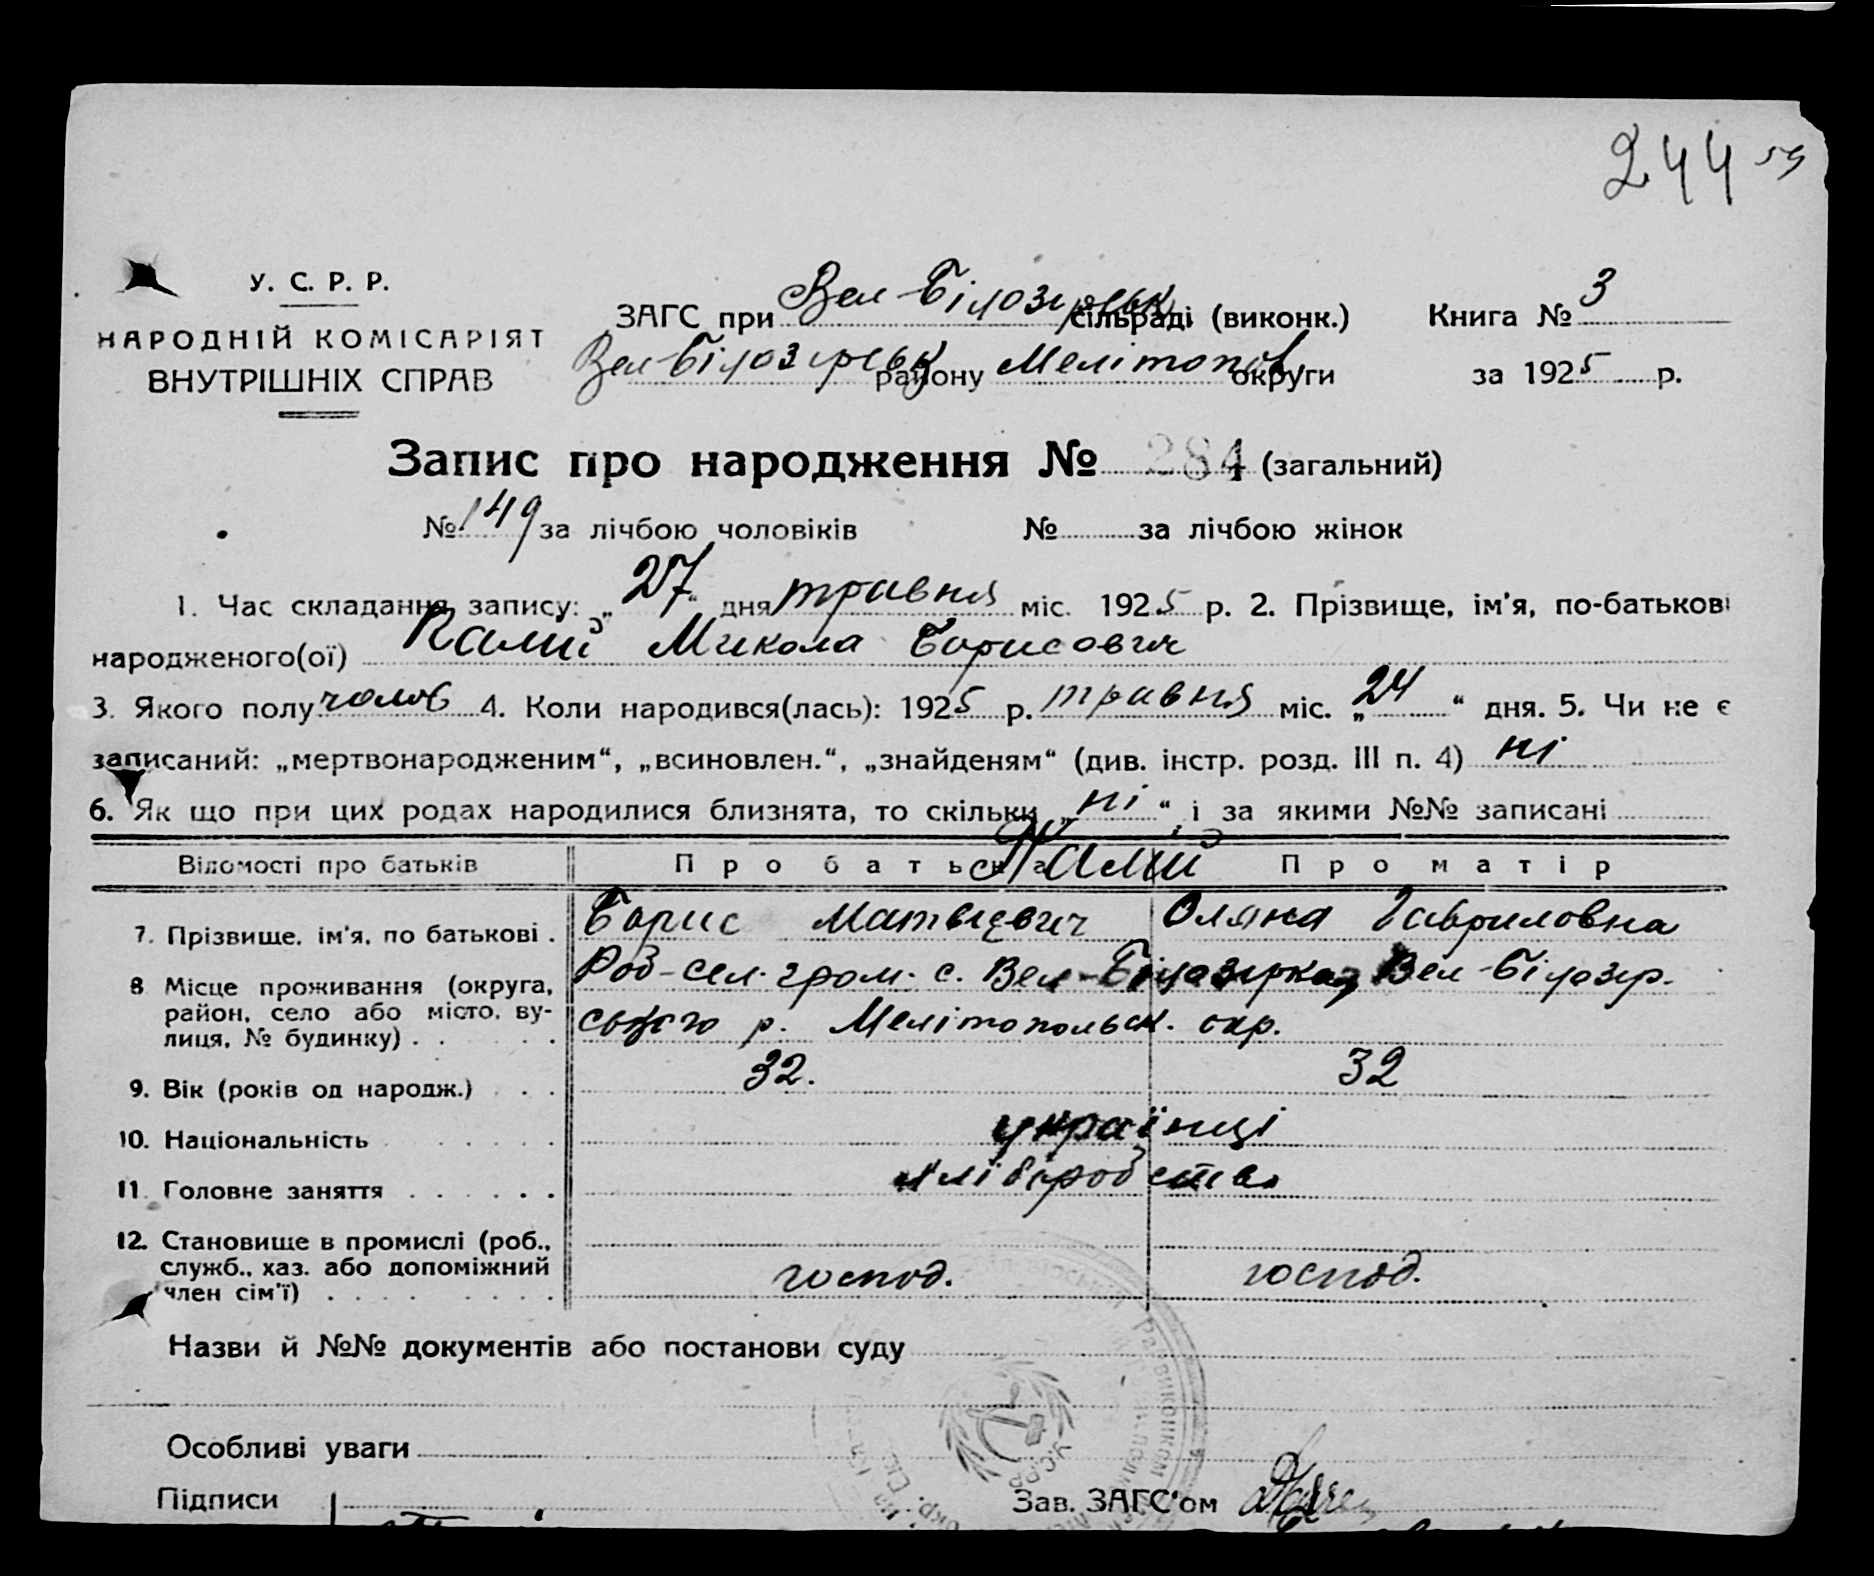 244 59
У. С. Р. Р.
НАРОДНІЙ КОМІСАРІЯТ
ВНУТРІШНІХ СПРАВ
ЗАГС при Вел-Білозірськ сільраді (виконк.)
Вел-Білозірськ району Мелітопов. округи
Книга № 3
за 1925 р.
Запис про народження № 284 (загальний)
№ 149 за лічбою чоловіків № за лічбою жінок
1. Час складання запису: „27“ дня травня міс. 1925 р. 2. Прізвище, ім'я, по-батькові
народженого(ої) Палий Микола Борисович
3. Якого полу чолов 4. Коли народився(лась): 1925 р. травня міс. „24“ дня. 5. Чи не є
записаний: „мертвонародженим“, „всиновлен.“, „знайденям“ (див. інстр. розд. III п. 4) ні
6. Як що при цих родах народилися близнята, то скільки „ні“, і за якими №№ записані
Відомості про батьків Про батька Про матір
Палий
7. Прізвище, ім'я, по батькові . Борис Матвієвич Оляна Гавриловна
8 Місце проживання (округа, район, село або місто, вулиця, № будинку) . . . .
Род-сел. гром. с. Вел-Білозірка, Вел-Білозір-
ського р. Мелітопольск. окр.
9. Вік (років од народж.) . . . 32. 32
10. Національність . . . . . українці
11. Головне заняття . . . . . . хліборобство
12. Становище в промислі (роб., служб., хаз. або допоміжний член сім'ї) . . . . . . . . господ. господ.
Назви й №№ документів або постанови суду
Особливі уваги
Підписи
Зав. ЗАГС'ом
У.С.Р.Р.